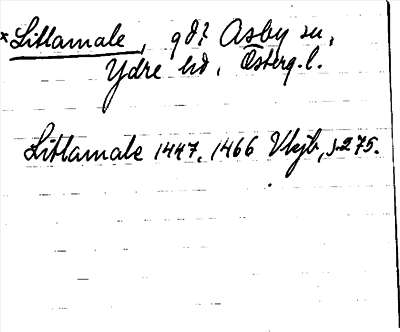 ×Littamale, gd? Asby sn,
Ydre hd, Österg.l.
Littamale 1447, 1466 Vtjb, s.275.